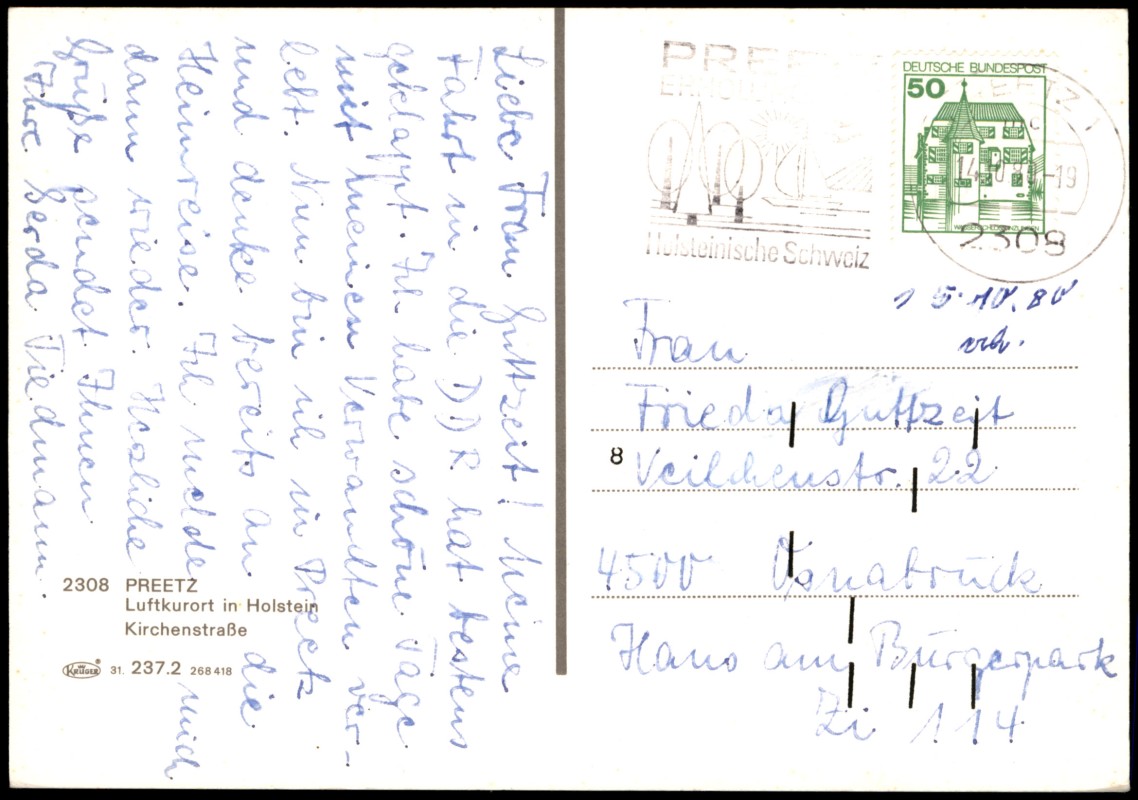 Liebe Frau Gutzeit! Meine
Fahrt in die DDR hat bestens
geklappt. Ich habe schöne Tage
mit meinen Verwandten ver-
lebt. Nun bin ich in Preetz
und denke bereits an die
Heimreise. Ich melde mich
dann wieder. Herzliche
Grüße sendet Ihnen
Ihre Gerda Tiedmann.
2308 PREETZ
Luftkurort in Holstein
Kirchenstraße
KRÜGER 31. 237.2 268 418
PREETZ
Holsteinische Schweiz
DEUTSCHE BUNDESPOST
50
WASSERSCHLOSS INZLINGEN
-19
2308
15.10.80
Frau
Frieda Guttzeit
8
Veilchenstr. 22
4500 Osnabrück
Haus am Bürgerpark
Zi 114